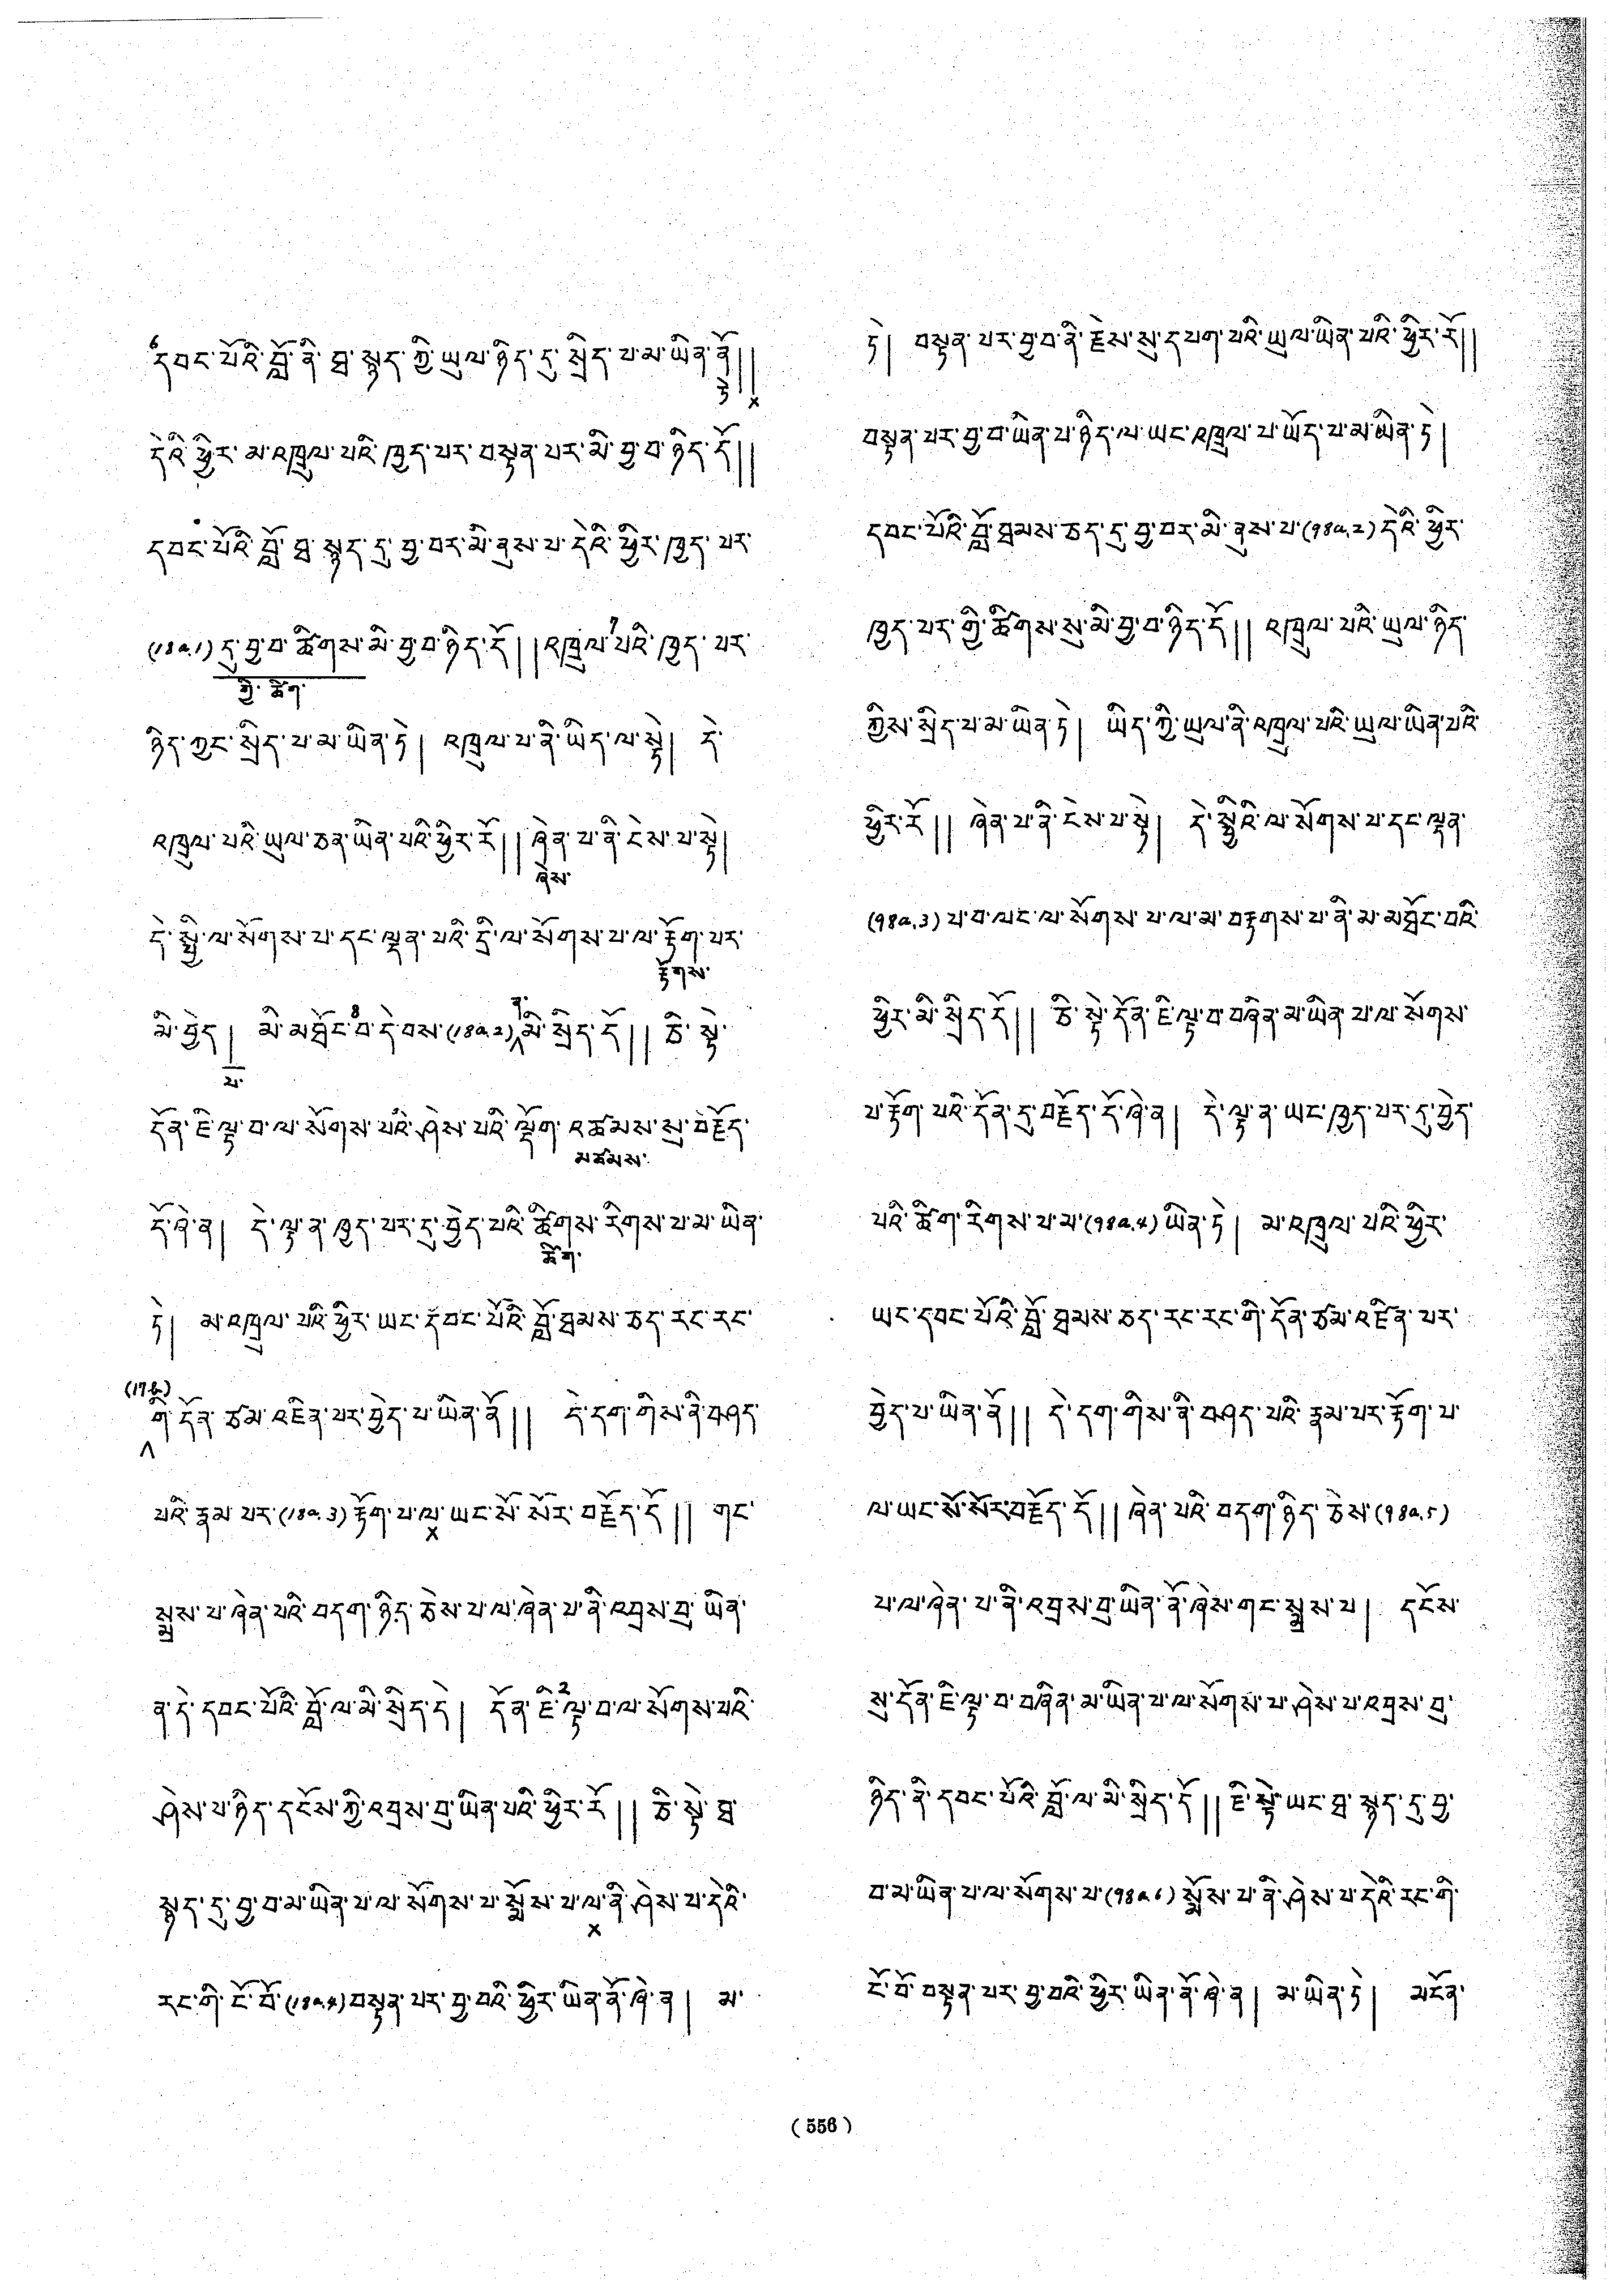 དབང་པོའི་བློ་ནི་ཐ་སྙད་ཀྱི་ཡུལ་ཉིད་དུ་སྲིད་པ་མ་ཡིན་ནོ།།
ཏེ x
དེའི་ཕྱིར་མ་འཁྲུལ་པའི་ཁྱད་པར་བསྟན་པར་མི་བྱ་བ་ཉིད་དོ།།
དབང་པོའི་བློ་ཐ་སྙད་དུ་བྱ་བར་མི་ནུས་པ་དེའི་ཕྱིར་ཁྱད་པར་
(18a.1) དུ་བྱ་བ་ཚིགས་མི་བྱ་བ་ཉིད་དོ།།འཁྲུལ་7པའི་ཁྱད་པར་
གྱི་ ཚིག་
ཉིད་ཀྱང་སྲིད་པ་མ་ཡིན་ཏེ། འཁྲུལ་པ་ནི་ཡིད་ལ་སྟེ། དེ་
འཁྲུལ་པའི་ཡུལ་ཅན་ཡིན་པའི་ཕྱིར་རོ།།ཞེན་པ་ནི་ངེས་པ་སྟེ།
ཞེས་
དེ་སྤྱི་ལ་སོགས་པ་དང་ལྡན་པའི་དྲི་ལ་སོགས་པ་ལ་རྟོག་པར་
རྟོགས་
མི་བྱེད། མི་མཐོང་8བ་དེ་བས་(18a.2)མི་སྲིད་དོ།། ཅི་སྟེ་
ན་
པ་
དོན་ཇི་ལྟ་བ་ལ་སོགས་པའི་ཤེས་པའི་ལྡོག་འཚམས་སུ་བརྗོད་
མཚམས་
དོ་ཞེ་ན། དེ་ལྟ་ན་ཁྱད་པར་དུ་བྱེད་པའི་ཚིགས་རིགས་པ་མ་ཡིན་
ཚིག་
ཏེ། མ་འཁྲུལ་པའི་ཕྱིར་ཡང་དབང་པོའི་བློ་ཐམས་ཅད་རང་རང་
(17b)
གི་དོན་ཙམ་འཛིན་པར་བྱེད་པ་ཡིན་ནོ།། དེ་དག་གིས་ནི་བཤད་
པའི་རྣམ་པར་(18a.3)རྟོག་པ་ལ་ཡང་སོ་སོར་བརྗོད་དོ།། གང་
x
སྨྲས་པ་ཞེན་པའི་བདག་ཉིད་ཅེས་པ་ལ་ཞེན་པ་ནི་འབྲས་བུ་ཡིན་
ན་དེ་དབང་པོའི་བློ་ལ་མི་སྲིད་དེ། དོན་ཇི་2ལྟ་བ་ལ་སོགས་པའི་
ཤེས་པ་ཉིད་དངོས་ཀྱི་འབྲས་བུ་ཡིན་པའི་ཕྱིར་རོ།། ཅི་སྟེ་ཐ་
སྙད་དུ་བྱ་བ་མ་ཡིན་པ་ལ་སོགས་པ་སྨོས་པ་ལ་ནི་ཤེས་པ་དེའི་
x
རང་གི་ངོ་བོ་(18a.4)བསྟན་པར་བྱ་བའི་ཕྱིར་ཡིན་ནོ་ཞེ་ན། མ་
ཏེ། བསྟན་པར་བྱ་བ་ནི་རྗེས་སུ་དཔག་པའི་ཡུལ་ཡིན་པའི་ཕྱིར་རོ།།
བསྟན་པར་བྱ་བ་ཡིན་པ་ཉིད་ལ་ཡང་འཁྲུལ་པ་ཡོད་པ་མ་ཡིན་ཏེ།
དབང་པོའི་བློ་ཐམས་ཅད་དུ་བྱ་བར་མི་ནུས་པ་(98a.2)དེའི་ཕྱིར་
ཁྱད་པར་གྱི་ཚིགས་སུ་མི་བྱ་བ་ཉིད་དོ།། འཁྲུལ་པའི་ཡུལ་ཉིད་
ཀྱིས་སྲིད་པ་མ་ཡིན་ཏེ། ཡིད་ཀྱི་ཡུལ་ནི་འཁྲུལ་པའི་ཡུལ་ཡིན་པའི་
ཕྱིར་རོ།། ཞེན་པ་ནི་ངེས་པ་སྟེ། དེ་སྤྱིའི་ལ་སོགས་པ་དང་ལྡན་
(98a.3)པ་བ་ལང་ལ་སོགས་པ་ལ་མ་བརྟགས་པ་ནི་མ་མཐོང་བའི་
ཕྱིར་མི་སྲིད་དོ།། ཅི་སྟེ་དོན་ཇི་ལྟ་བ་བཞིན་མ་ཡིན་པ་ལ་སོགས་
པ་རྟོག་པའི་དོན་དུ་བརྗོད་དོ་ཞེ་ན། དེ་ལྟ་ན་ཡང་ཁྱད་པར་དུ་བྱེད་
པའི་ཚིག་རིགས་པ་མ་(98a.4)ཡིན་ཏེ། མ་འཁྲུལ་པའི་ཕྱིར་
ཡང་དབང་པོའི་བློ་ཐམས་ཅད་རང་རང་གི་དོན་ཙམ་འཛིན་པར་
བྱེད་པ་ཡིན་ནོ།། དེ་དག་གིས་ནི་བཤད་པའི་རྣམ་པར་རྟོག་པ་
ལ་ཡང་སོ་སོར་བརྗོད་དོ།།ཞེན་པའི་བདག་ཉིད་ཅེས་(98a.5)
པ་ལ་ཞེན་པ་ནི་འབྲས་བུ་ཡིན་ནོ་ཞེས་གང་སྨྲས་པ། དངོས་
སུ་དོན་ཇི་ལྟ་བ་བཞིན་མ་ཡིན་པ་ལ་སོགས་པ་ཤེས་པ་འབྲས་བུ་
ཉིད་ནི་དབང་པོའི་བློ་ལ་མི་སྲིད་དོ།།ཇི་སྟེ་ཡང་ཐ་སྙད་དུ་བྱ་
བ་མ་ཡིན་པ་ལ་སོགས་པ་(98a.6)སྨོས་པ་ནི་ཤེས་པ་དེའི་རང་གི་
ངོ་བོ་བསྟན་པར་བྱ་བའི་ཕྱིར་ཡིན་ནོ་ཞེ་ན། མ་ཡིན་ཏེ། མངོན་
(556)